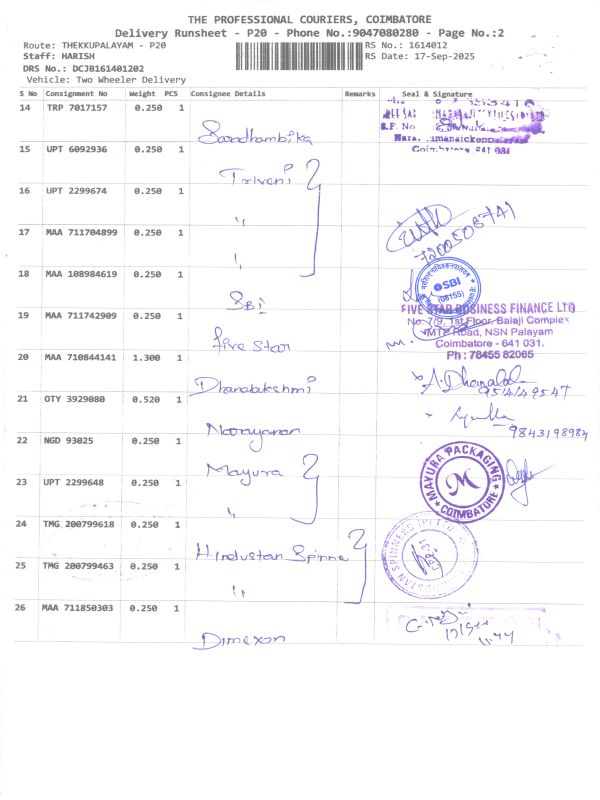 THE PROFESSIONAL COURIERS, COIMBATORE
Delivery Runsheet - P20 - Phone No.:9047080280 - Page No.:2
Route: THEKKUPALAYAM - P20 RS No.: 1614012
Staff: HARISH RS Date: 17-Sep-2025
DRS No.: DCJB161401202
Vehicle: Two Wheeler Delivery
S No Consignment No Weight PCS Consignee Details Remarks Seal & Signature
14 TRP 7017157 0.250 1
Coimbatore 641 031
15 UPT 6092936 0.250 1
Triveni
16 UPT 2299674 0.250 1
"
17 MAA 711704899 0.250 1
"
18 MAA 108984619 0.250 1
SBI
SBI
(08155)
19 MAA 711742909 0.250 1
five Star
FIVE STAR BUSINESS FINANCE LTD
No. 7/9, 1st Floor, Balaji Complex
MTP Road, NSN Palayam
Coimbatore - 641 031.
Ph : 78455 82065
20 MAA 710844141 1.300 1
Dhanalakshmi
21 OTY 3929080 0.520 1
Narayanan
9843198984
22 NGD 93025 0.250 1
Mayura
MAYURA PACKAGING
M
COIMBATORE
23 UPT 2299648 0.250 1
"
24 TMG 200799618 0.250 1
Hindustan Spinne
25 TMG 200799463 0.250 1
"
26 MAA 711850303 0.250 1
Dimexon